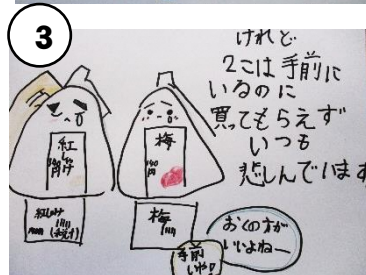 3
けれど
2こは手前に
いるのに
買てもらえず
いつも
悲しんでいます
紅
梅
140円
梅
おくの方が
いいよねー
手前
いや!